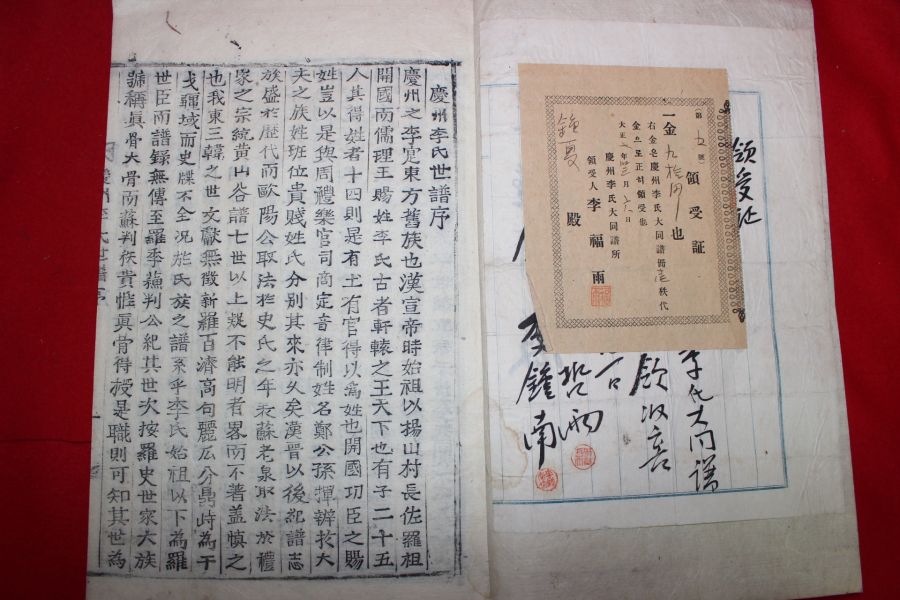 慶州李氏世譜序
慶州之李寔東方舊族也漢宣帝時始祖以楊山村長佐羅祖
開國南儒理王賜姓李氏古者軒轅之王天下也有子二十五
人其得姓者十四則是有土有官得以爲姓也開國功臣之賜
姓豈以是與周禮樂官司商定音律制姓名鄭公孫揮辨於大
夫之族姓班位貴賤姓氏分別其來亦久矣漢晉以後紀譜志
族盛於歷代而歐陽公取法於史氏之年表蘇老泉取法於禮
家之宗統黃山谷譜七世以上疑不能明者畧而不著盖慎之
也我東三韓之世文獻無徵新羅百濟高句麗瓜分鼎峙爲干
戈疆域而史牒不全况於氏族之譜系乎李氏始祖以下爲羅
世臣而譜錄無傳至羅季蘓判公紀其世次按羅史世家大族
號稱眞骨大骨而蘇判秩貴惟眞骨得授是職則可知其世爲
領受証
第 九 號 領受証
一金九拾円也
右金은慶州李氏大同譜冊壹秩代
金으로正히領受也
大正 年 月 日
慶州李氏大同譜所
領受人 李福雨
鍾夏 殿
李氏大同譜
領收喜
雨
李鍾南